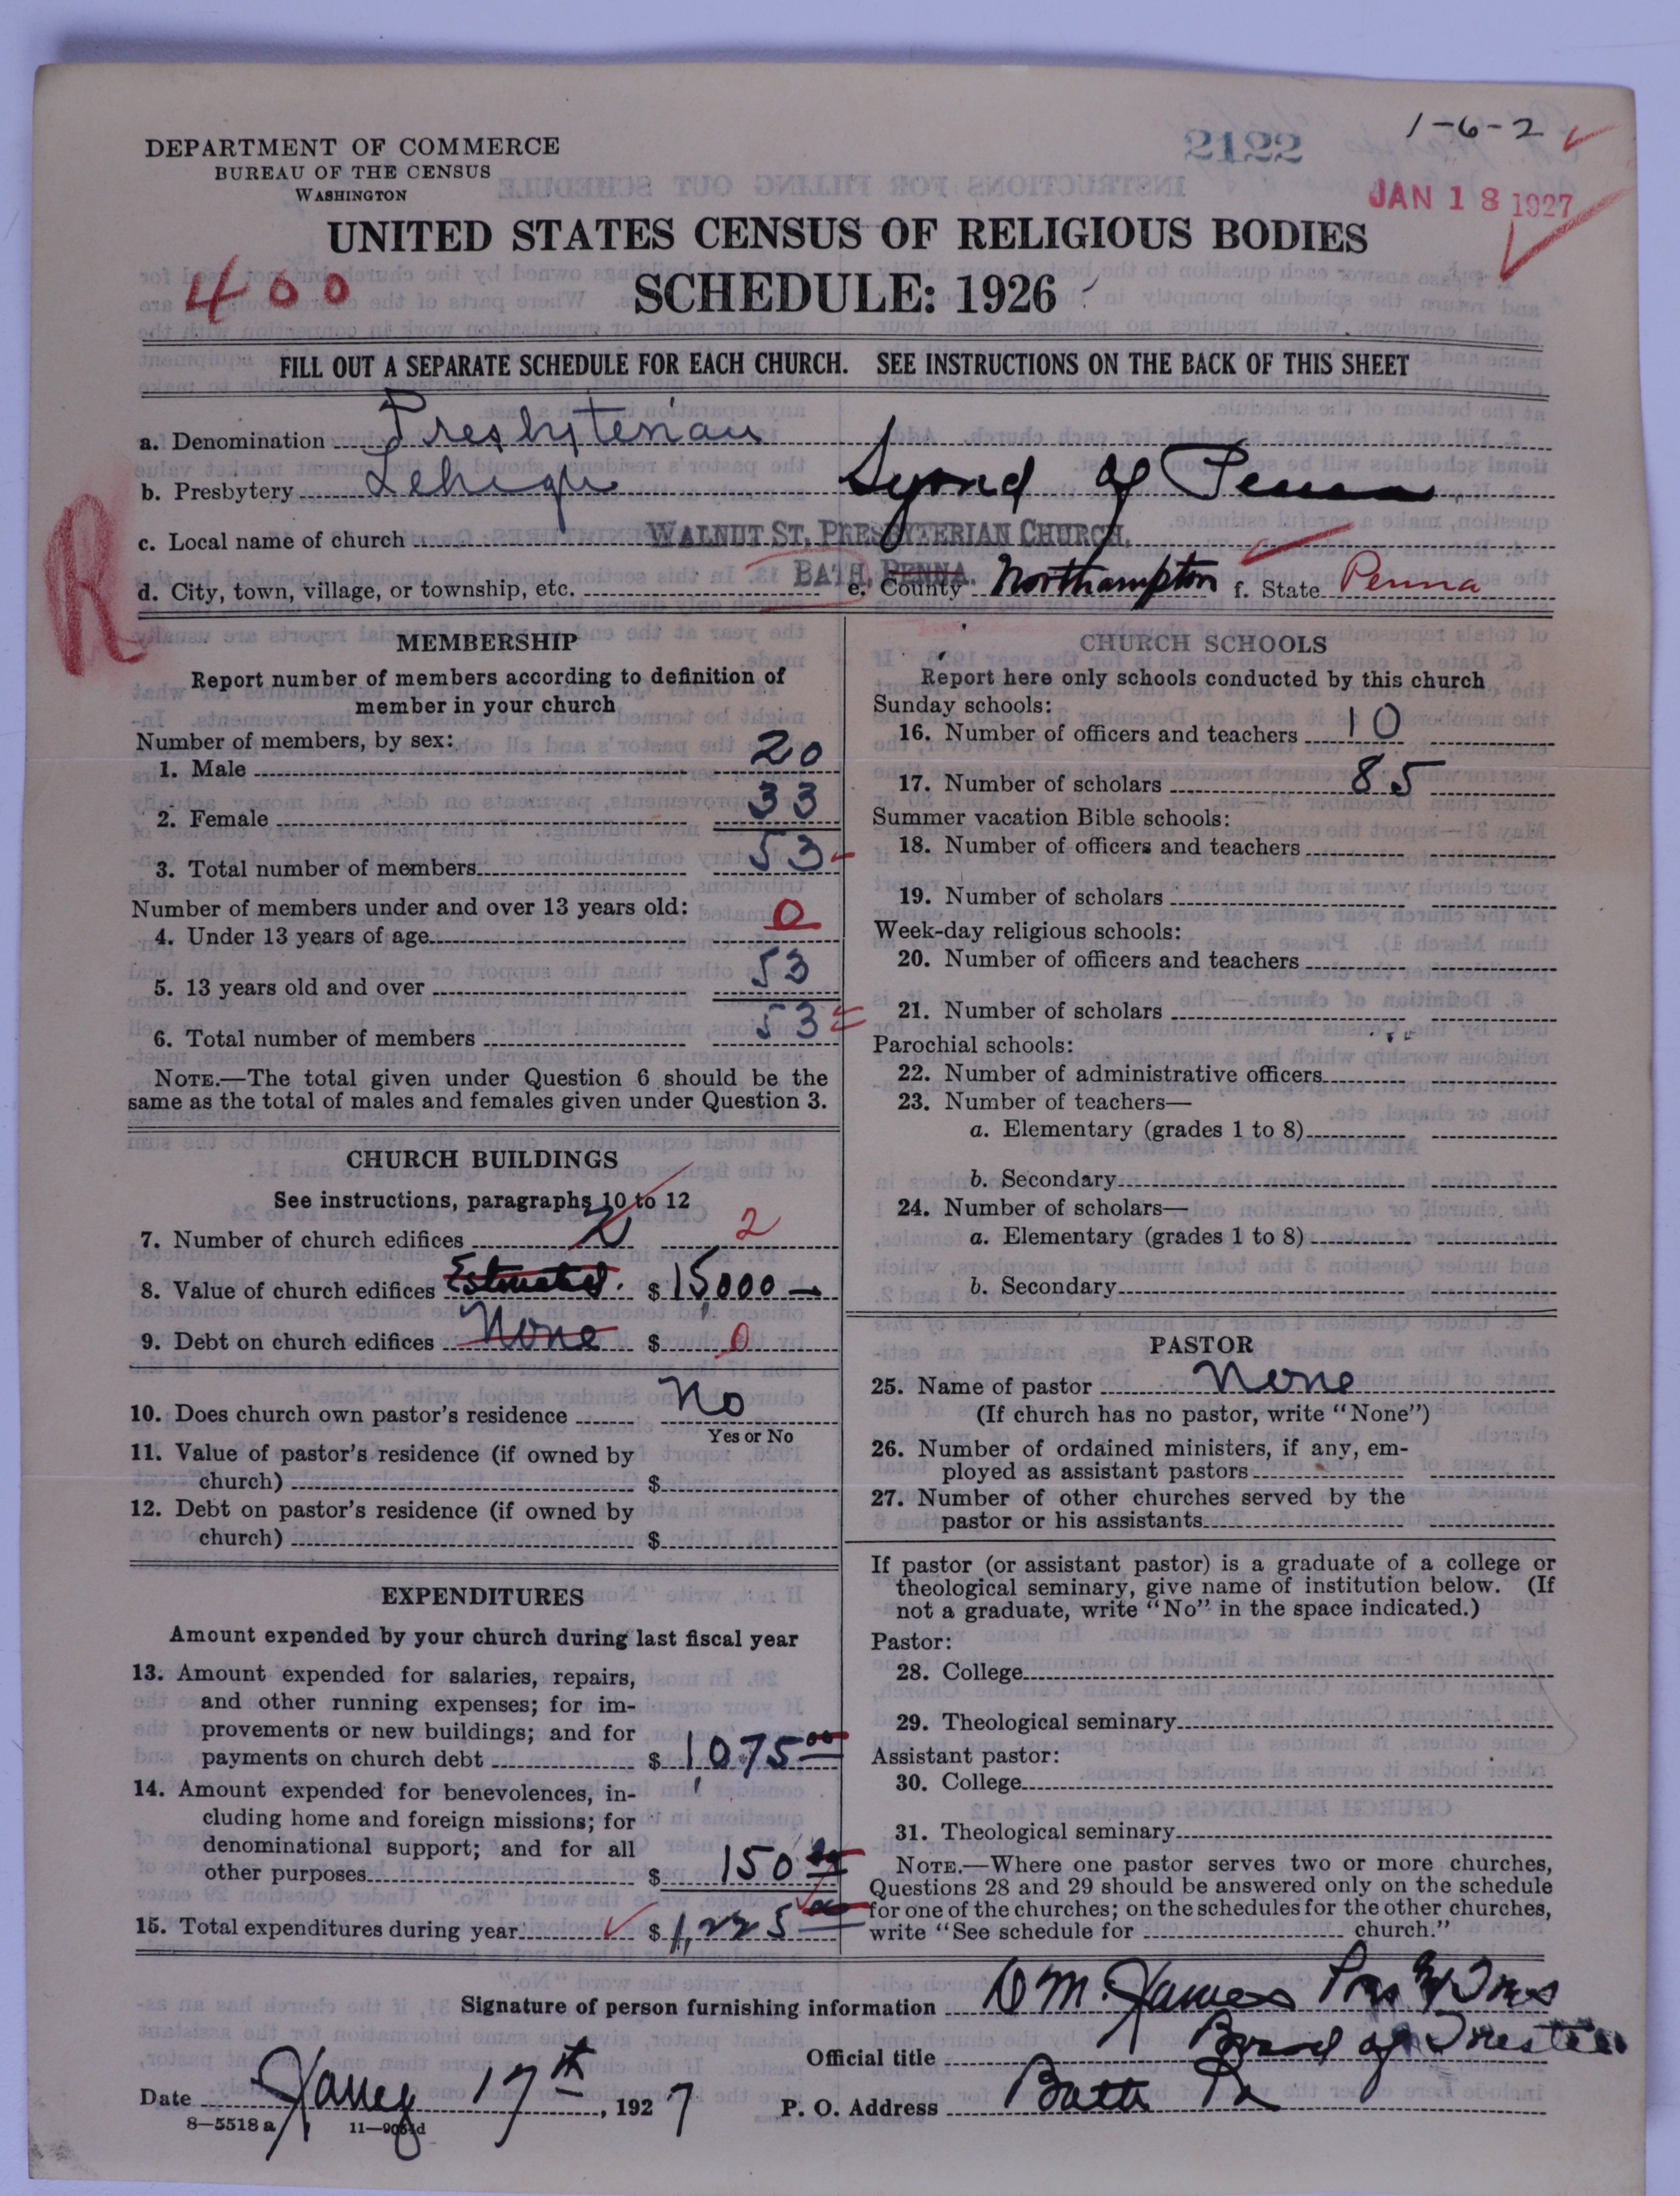 1-6-2
2122
DEPARTMENT OF COMMERCE
BUREAU OF THE CENSUS
WASHINGTON
JAN 18 1927
UNITED STATES CENSUS OF RELIGIOUS BODIES
400
SCHEDULE: 1926
FILL OUT A SEPARATE SCHEDULE FOR EACH CHURCH. SEE INSTRUCTIONS ON THE BACK OF THIS SHEET
a. Denomination Presbyterian
b. Presbytery Lehigh Synod of Penna
R
c. Local name of church WALNUT ST. PRESBYTERIAN CHURCH,
d. City, town, village, or township, etc. BATH, PENNA. e. County Northampton f. State Penna
MEMBERSHIP
Report number of members according to definition of
member in your church
Number of members, by sex:
1. Male 20
2. Female 33
3. Total number of members 53
Number of members under and over 13 years old:
4. Under 13 years of age 0
5. 13 years old and over 53
6. Total number of members 53
NOTE.—The total given under Question 6 should be the
same as the total of males and females given under Question 3.
CHURCH BUILDINGS
See instructions, paragraphs 10 to 12
7. Number of church edifices 2 2
8. Value of church edifices Estimated. $ 15,000
9. Debt on church edifices None $ 0
10. Does church own pastor's residence No
Yes or No
11. Value of pastor's residence (if owned by
church) $
12. Debt on pastor's residence (if owned by
church) $
EXPENDITURES
Amount expended by your church during last fiscal year
13. Amount expended for salaries, repairs,
and other running expenses; for im-
provements or new buildings; and for
payments on church debt $ 1,075 00
14. Amount expended for benevolences, in-
cluding home and foreign missions; for
denominational support; and for all
other purposes $ 150
15. Total expenditures during year $ 1,225
CHURCH SCHOOLS
Report here only schools conducted by this church
Sunday schools:
16. Number of officers and teachers 10
17. Number of scholars 85
Summer vacation Bible schools:
18. Number of officers and teachers
19. Number of scholars
Week-day religious schools:
20. Number of officers and teachers
21. Number of scholars
Parochial schools:
22. Number of administrative officers
23. Number of teachers—
a. Elementary (grades 1 to 8)
b. Secondary
24. Number of scholars—
a. Elementary (grades 1 to 8)
b. Secondary
PASTOR
25. Name of pastor None
(If church has no pastor, write "None")
26. Number of ordained ministers, if any, em-
ployed as assistant pastors
27. Number of other churches served by the
pastor or his assistants
If pastor (or assistant pastor) is a graduate of a college or
theological seminary, give name of institution below. (If
not a graduate, write "No" in the space indicated.)
Pastor:
28. College
29. Theological seminary
Assistant pastor:
30. College
31. Theological seminary
NOTE.—Where one pastor serves two or more churches,
Questions 28 and 29 should be answered only on the schedule
for one of the churches; on the schedules for the other churches,
write "See schedule for church."
Signature of person furnishing information D M. James Pres
Official title Board of Trustees
Date Jany 17th, 1927 P. O. Address Bath Pa
8—5518 a